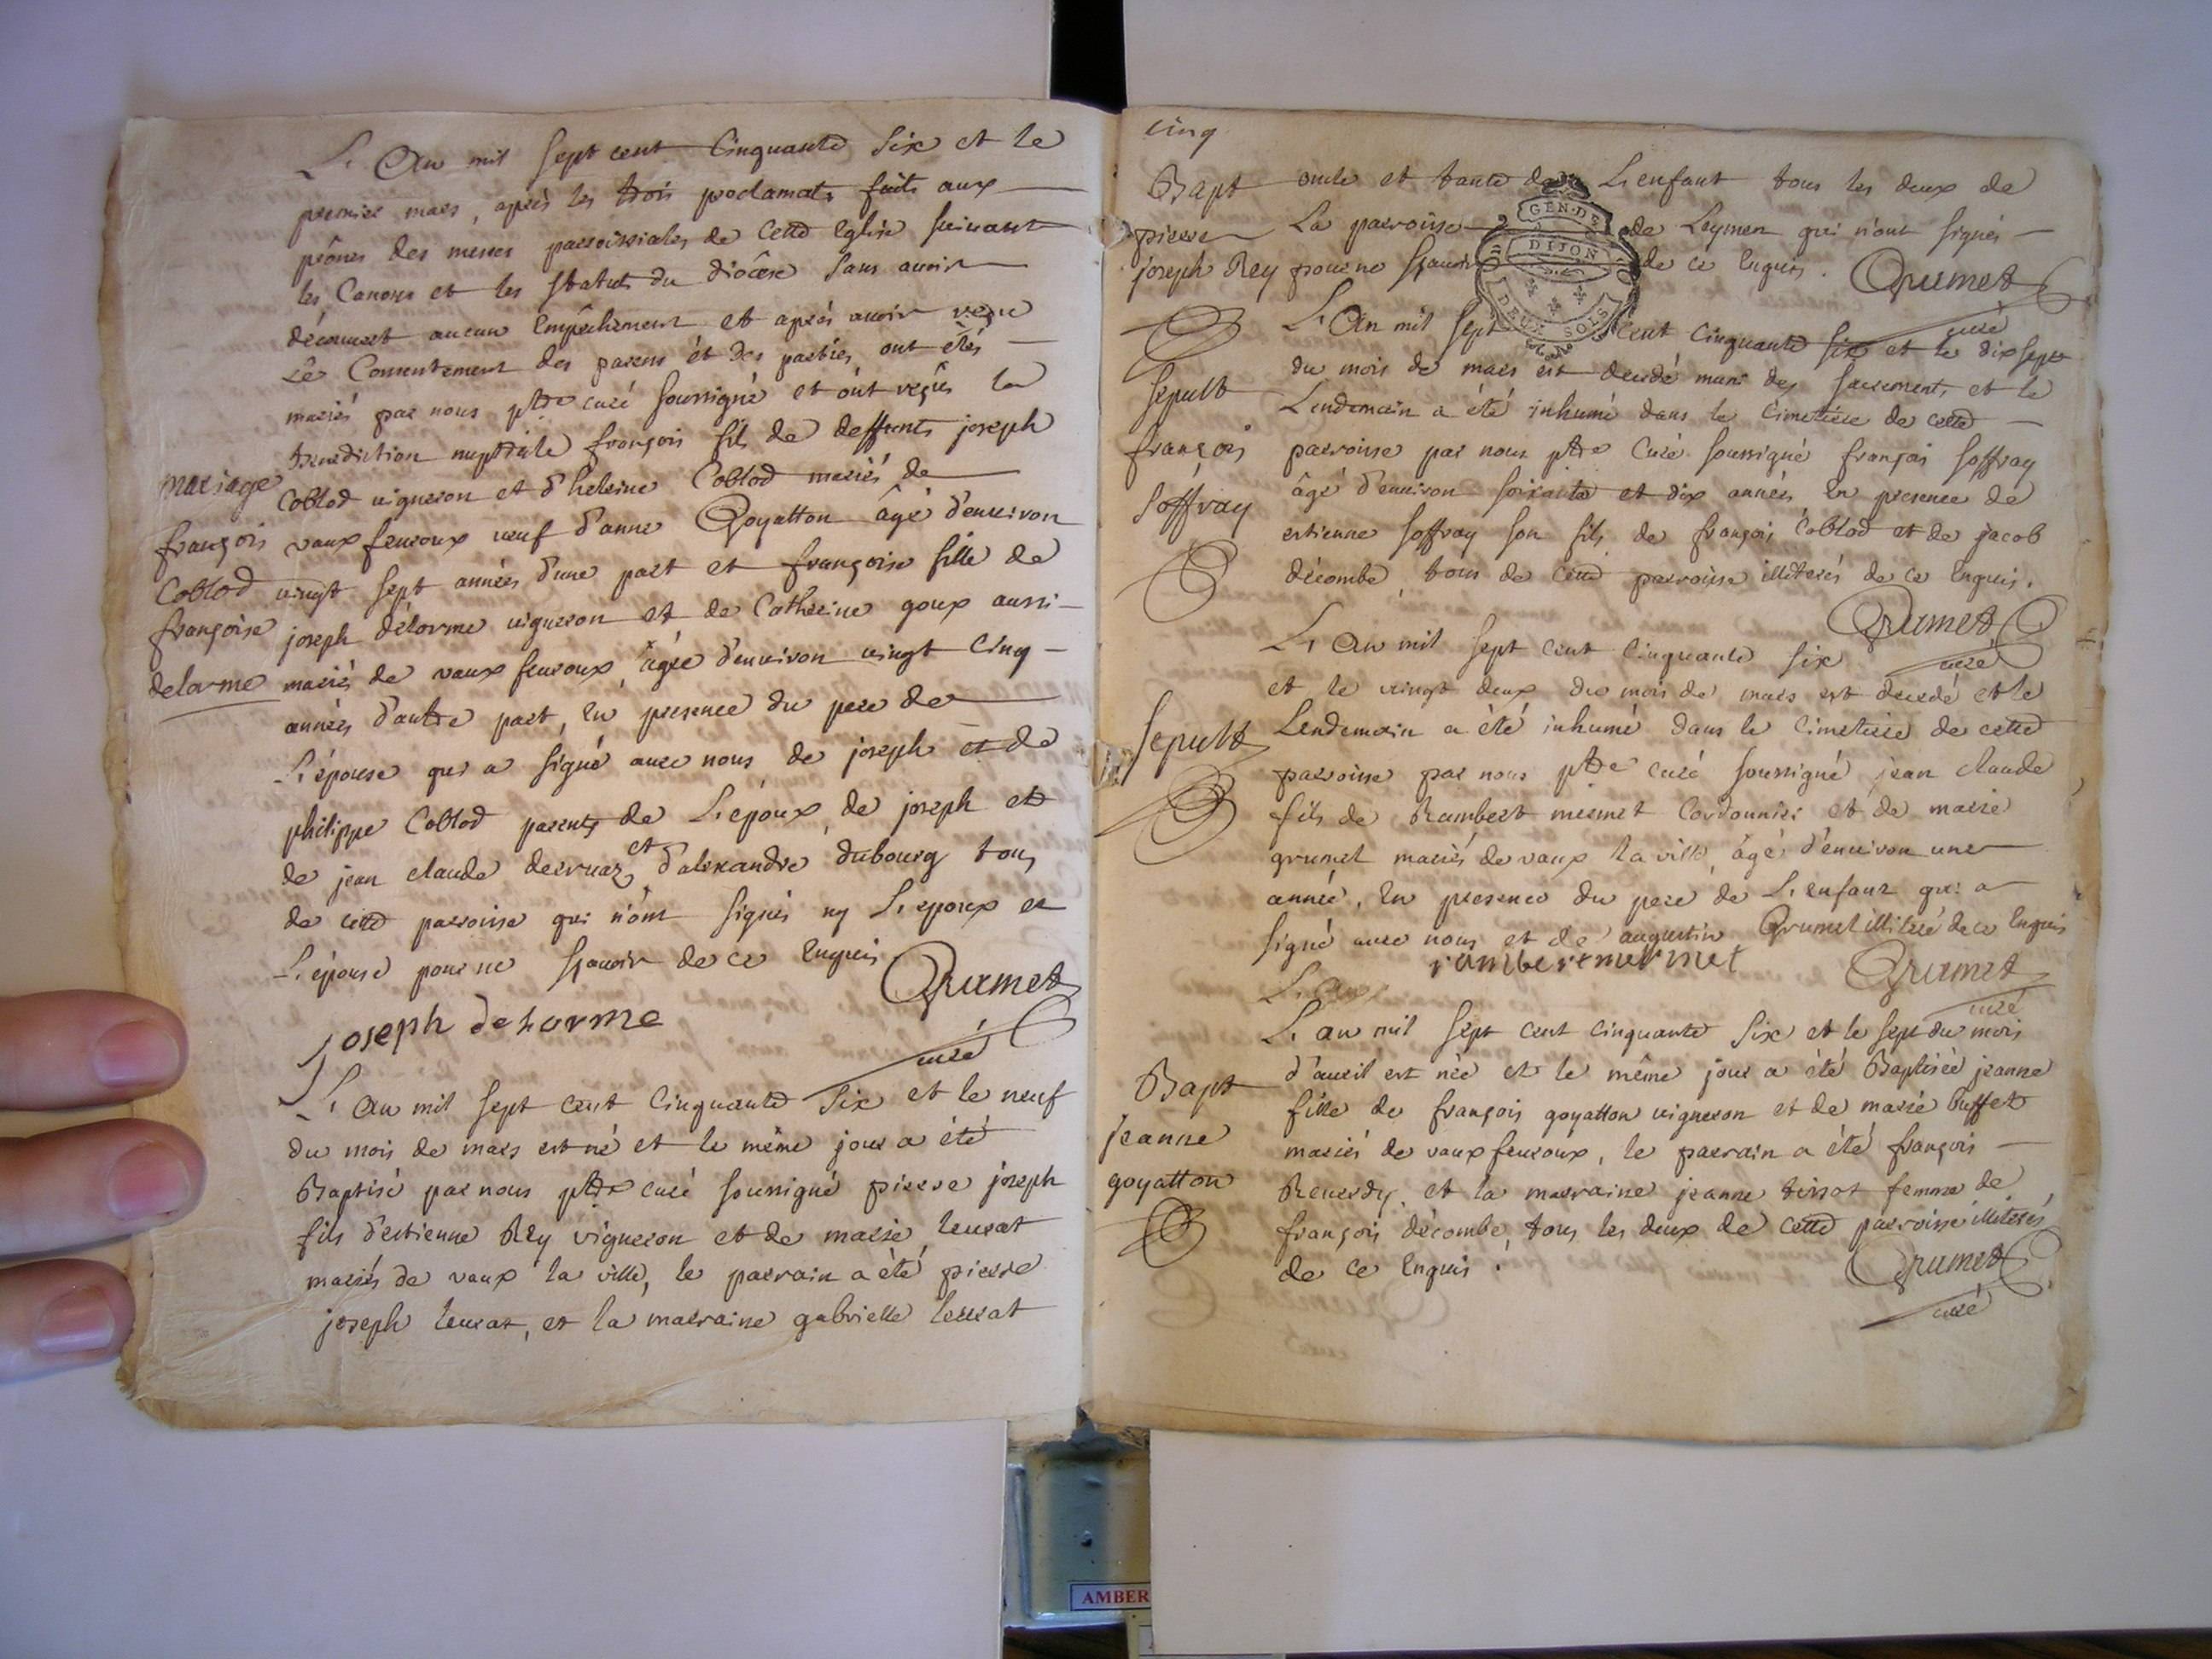 L'An mil sept cent Cinquante Six et le
premier mars, après les trois proclamat. faits aux
prônes des messes parroissiales de Cette Eglise suivant
les Canons et les statuts du diôcese sans avoir
découvert aucun Empêchement et aprés avoir veçu
Le Consentement des parens ét des parties, ont étés
mariés par nous ptre curé soussigné et ont reçûs la
Benediction nuptiale françois fils de deffunts joseph
mariage
Coblod vigneron et d'heleine Coblod mariés de
françois
vaux fevroux veuf d'anne Goyatton âgé d'environ
Coblod
vingt sept années d'une part et françoise fille de
françoise
joseph délorme vigneron et de Catherine goux aussi
delorme
mariés de vaux fevroux, âgée d'environ vingt Cinq
années d'autre part, En presence du pere de
L'épouse qui a signé avec nous, de joseph et de
philippe Coblod parents de L'epoux, de joseph et
de jean claude dervuaz et d'alexandre dubourg tous
de cette parroisse qui n'ont signés ny L'epoux et
L'épouse pour ne sçavoir de ce Enquis
Grumet
curé
joseph delorme
L'An mil sept cent Cinquante Six et le neuf
du mois de mars est né et le même jour a été
Baptisé par nous ptre curé soussigné pierre joseph
fils d'estienne Rey vigneron et de marie leurat
mariés de vaux la ville, le parrain a été pierre
joseph leurat, et la marraine gabrielle leurat
cinq
Bapt
pierre
joseph Rey
oncle et tante de L'enfant tous les deux de
La parroisse de Leymen qui n'ont signés
pour ne sçavoir de ce Enquis.
Grumet
curé
GEN. DE
DIJON
DEUX SOLS
L'An mil sept cent Cinquante six et le dix sept
du mois de mars est decedé muni des sacrements, et le
Sepult
Lendemain a été inhumé dans le Cimetiere de cette
françois
parroisse par nous ptre Curé soussigné françois soffray
Soffray
âgé d'environ soixante et dix années, En presence de
estienne soffray son fils, de françois Coblod et de jacob
décombe, tous de cette parroisse illiterés de ce Enquis.
Grumet
curé
L'An mil sept cent Cinquante six
et le vingt deux du mois de mars est decedé et le
Sepult
Lendemain a été inhumé dans le Cimetiere de cette
parroisse par nous ptre curé soussigné jean claude
fils de Rambert mermet Cordonnier et de marie
grumet mariés de vaux la ville, âgé d'environ une
année, En presence du pere de L'enfant qui a
signé avec nous et de augustin Grumet illiteré de ce Enquis
rambert mermet
Grumet
curé
L'An
L'an mil sept cent Cinquante Six et le sept du mois
Bapt
d'avril est née et le même jour a été Baptisée jeanne
fille de françois goyatton vigneron et de marie buffet
jeanne
mariés de vaux fevroux, le parrain a été françois
goyatton
Reverdy, et la marraine jeanne tissot femme de
françois décombe, tous les deux de cette parroisse illiterés,
de ce Enquis.
Grumet
curé
AMBER